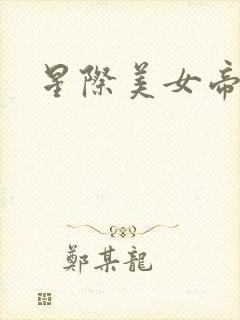 星際美女帝
鄭某龍